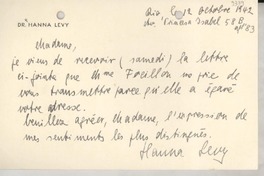 Rio, le 12 octobre 1942
DR. HANNA LEVY
Princesa Isabel 58 B
apt 83
Madame,
je viens de recevoir (samedi) la lettre
ci-jointe que Mme Focillon me prie de
vous transmettre parce qu'elle a égaré
votre adresse.
Veuillez agréer, Madame, l'expression de
mes sentiments les plus distingués.
Hanna Levy